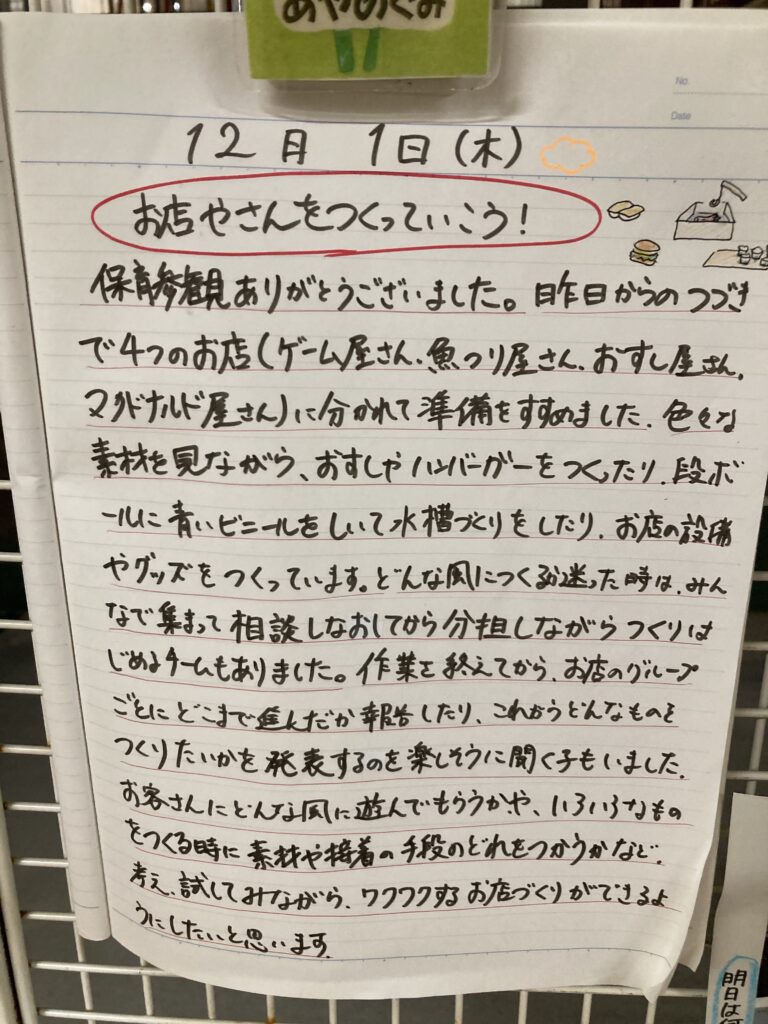 あやめぐみ
No.
Date
12月 1日(木)
お店やさんをつくっていこう!
保育参観ありがとうございました。昨日からのつづき
で4つのお店(ゲーム屋さん、魚つり屋さん、おすし屋さん、
マクドナルド屋さん)に分かれて準備をすすめました。色々な
素材を見ながら、おすしやハンバーガーをつくったり、段ボ
ールに青いビニールをしいて水槽づくりをしたり、お店の設備
やグッズをつくっています。どんな風につくるか迷った時は、みん
なで集まって相談しなおしてから分担しながらつくりは
じめるチームもありました。作業を終えてから、お店のグループ
ごとにどこまで進んだか報告したり、これからどんなものを
つくりたいかを発表するのを楽しそうに聞く子もいました。
お客さんにどんな風に遊んでもらうかや、いろいろなもの
をつくる時に素材や接着の手段のどれをつかうかなど、
考え、試してみながら、ワクワクするお店づくりができるよ
うにしたいと思います。
明日は